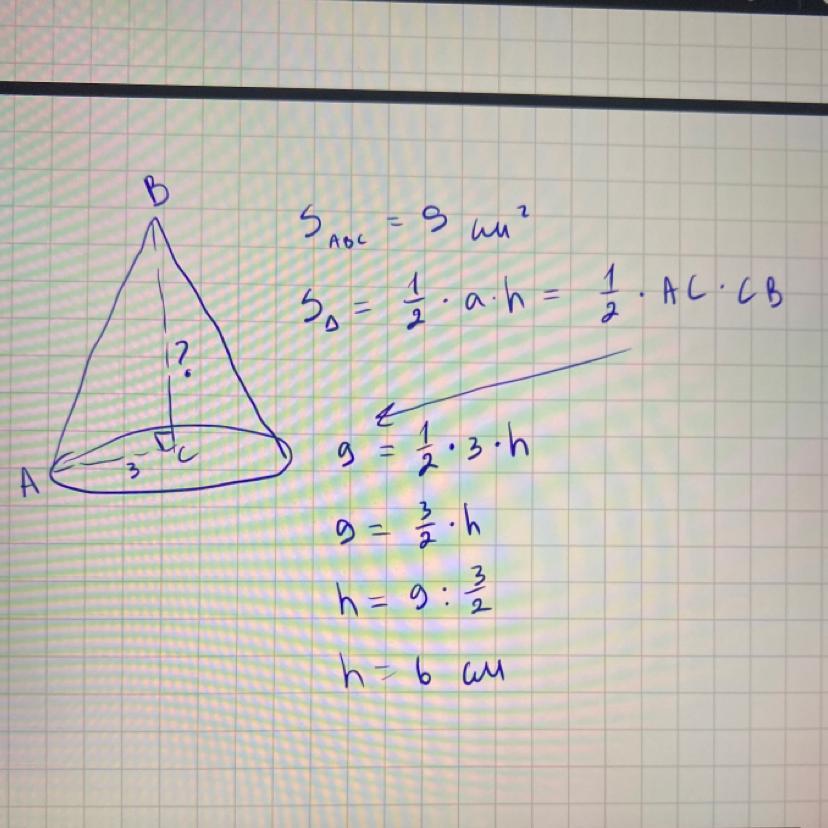 B
S ABC = 9 см²
S Δ = 1/2 · a · h = 1/2 · AC · CB
?
A 3 C
9 = 1/2 · 3 · h
9 = 3/2 · h
h = 9 : 3/2
h = 6 см